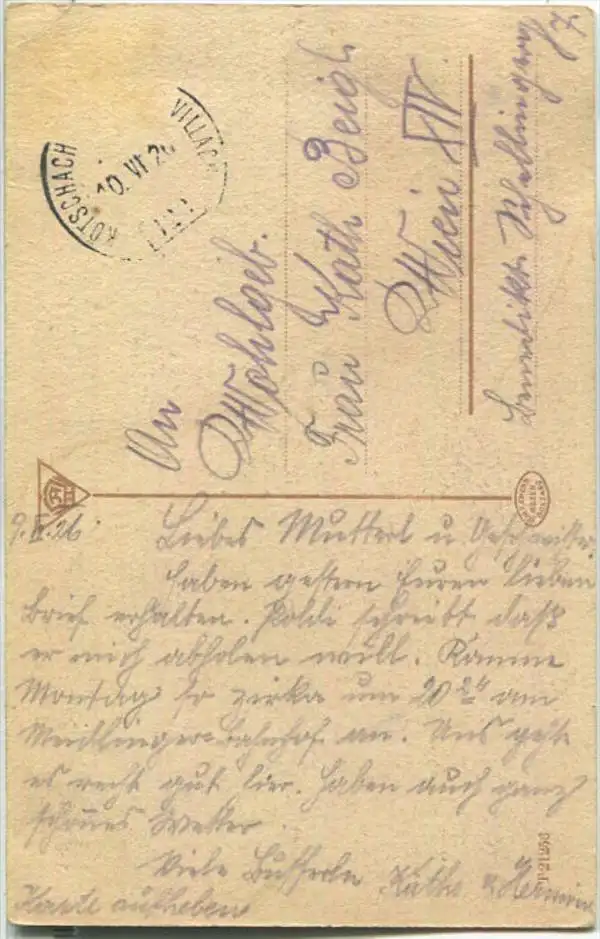 KÖTSCHACH VILLACH
10. VI 26
An
Wohlgeb.
Frau Kath Beigl
Wien XIV
Benedikt Schellingerg
7
9.VI.26.
Liebes Mutterl u. Geschwister.
Haben gestern Euren lieben
Brief erhalten. Poldi schreibt daß
er mich abholen will. Komme
Montag so zirka um 20 24 am
Meidlinger-Bahnhof an. Uns geht
es recht gut hier. Haben auch ganz
schönes Wetter.
Viele Busserln Käthe & Hermine
Karte aufheben
P 21256